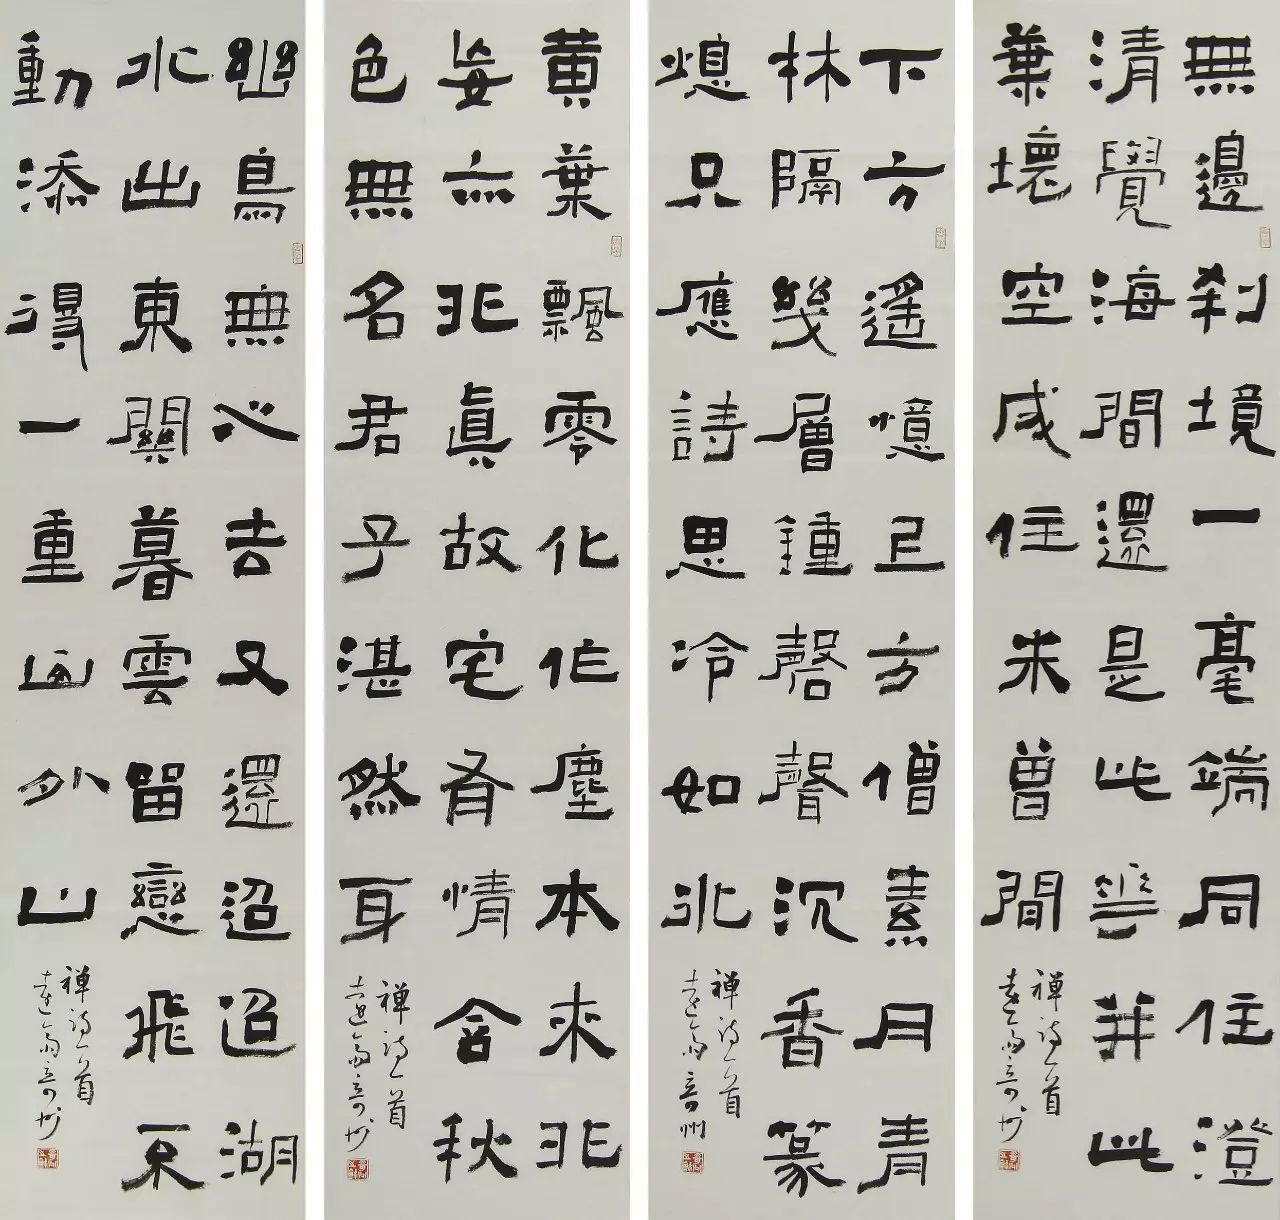 無邊刹境一毫端同住澄
清覺海間還是此花并此
葉壞空咸住未曾間
禅诗一首
下方遥憶上方僧素月青
林隔幾層鐘磬聲沉香篆
熄只應詩思冷如冰
禅诗一首
黄葉飄零化作塵本來非
妄亦非真故宅有情含秋
色無名君子湛然身
禅诗一首
幽鳥無心去又還迢迢湖
水出東關暮雲留戀飛不
動添得一重山外山
禅诗一首